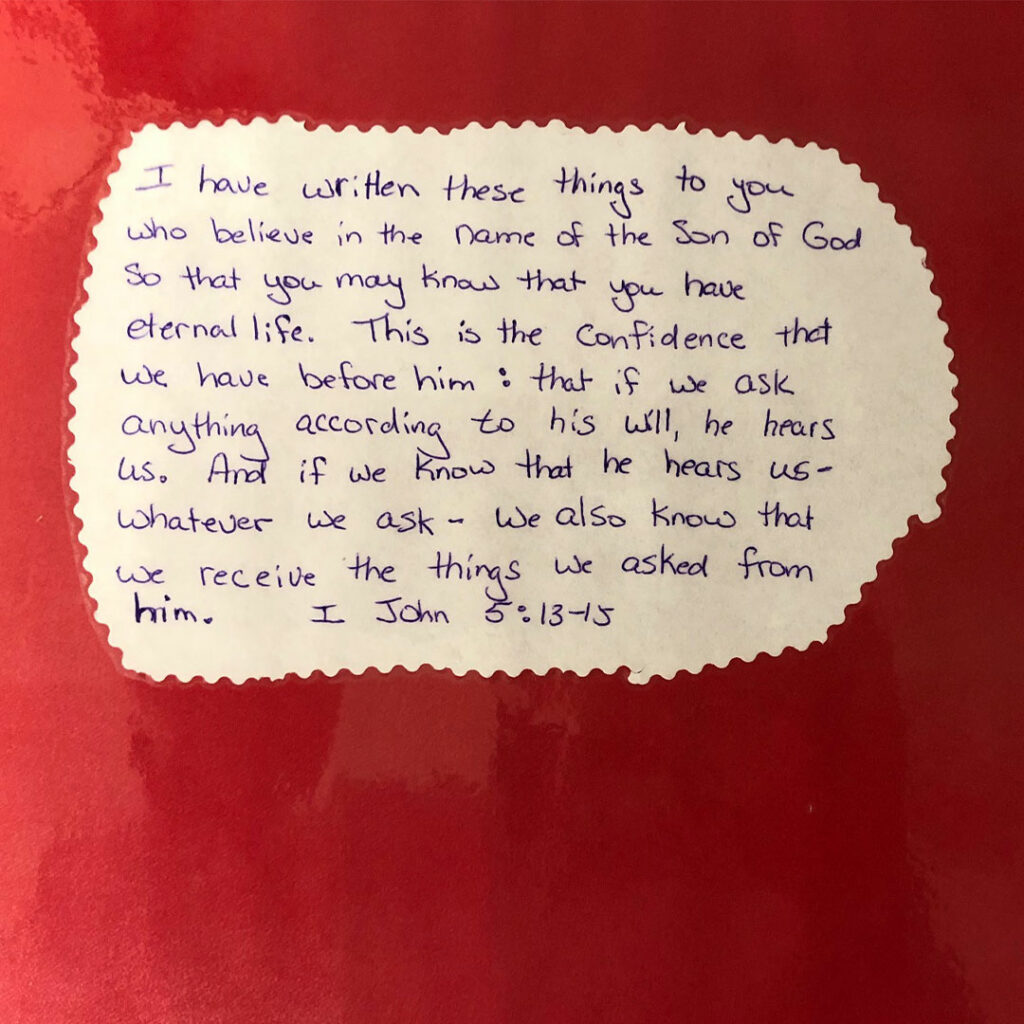 I have written these things to you
who believe in the name of the Son of God
So that you may know that you have
eternal life. This is the Confidence that
we have before him : that if we ask
anything according to his will, he hears
us. And if we know that he hears us-
whatever we ask - we also know that
we receive the things we asked from
him. I John 5:13-15